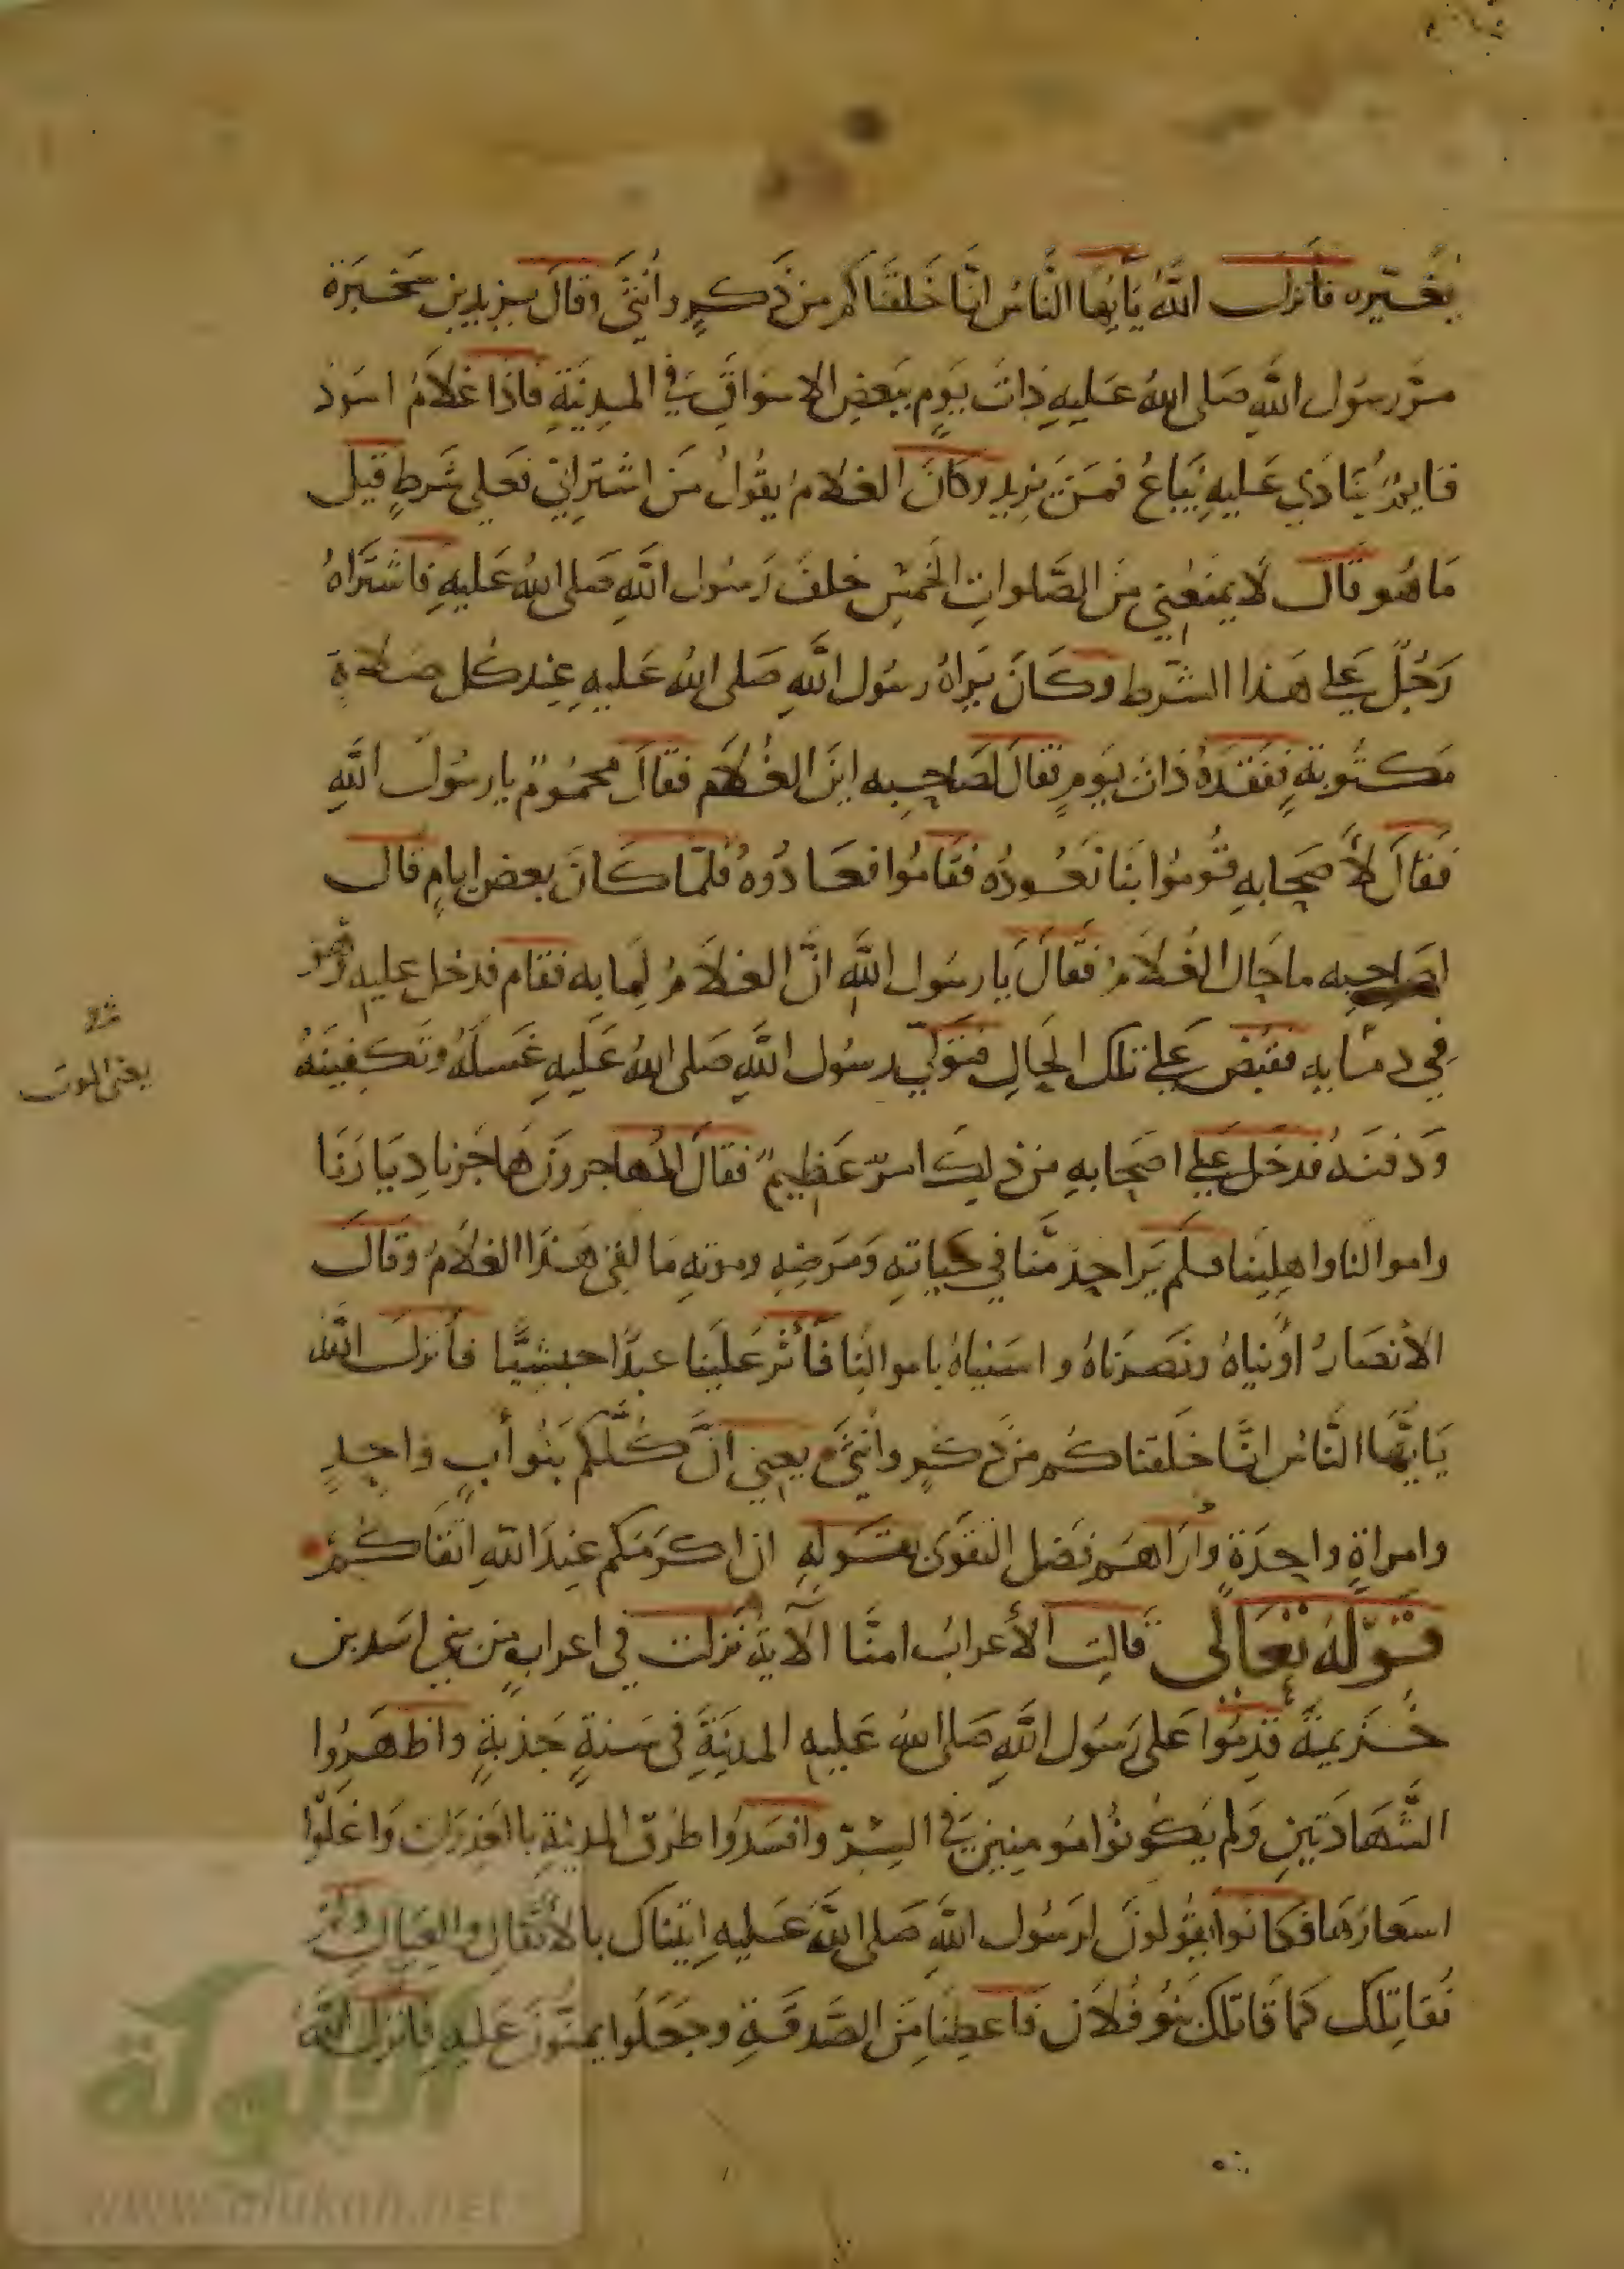 يُغيّره فأنزل اللهُ يَأيُّها النَّاسُ انَّا خَلقنَاكم من ذَكرٍ وأنثَى وقال يزيد بن شَجَرَة
مرَّ رسُول اللهِ صَلى اللهُ عَليهِ ذاتَ يَومٍ ببَعضِ الاسوَاقِ في المدِينَةِ فَاذَا غلاَمُ اسوَدُ
قايمٌ يُنَادَي عَليهِ يُبَاعُ فمَن يَزيد وكَانَ الغلام يقُولُ مَن اشتَرَاني فعَلي شَرطٍ قيل
مَا هُو قَال لا يمنعْني مَن الصَّلواتِ الخمسِ خلفَ رَسُول اللهِ صَلى اللهُ عَليهِ فاشتَرَاهُ
رَجُلٌ عَلي هَذا الشّرط وكَانَ يَرَاهُ رسُول اللهِ صَلى اللهُ عَليهِ عِند كل صَلاة
مَكتُوبَةٍ ففَقَدَهُ ذات يَومٍ فقال لصَاحِبه اينَ الغُلام فقَالَ محمُومٌ يا رسُولَ اللهِ
فَقَالَ لأَصحَابهِ قُومُوا بنَا نَعُودُه فقَامُوا فعَادُوهُ فلمّا كَانَ بعض ايامٍ قال
لصَاحِبه ما حَال الغُلامُ فقَالَ يَا رسُول اللهِ انَّ الغلاَمُ لِما به فقام فدخل عليهِ وهو
في ذمَائِه فقُبِض عَلي تلك الحَالِ فتَولّي رسُول اللهِ صَلى اللهُ عَليهِ غَسلَهُ وتَكفِينَهُ
يعني الموت
وَدَفنَهُ فدَخَل عَلي اصحَابهِ من ذلِك امرٌ عَظِيم فقالَ المُهاجرونَ هَاجَرنا دِيَارَنَا
واموالنا واهلِينا فلَم يَرَ احدٌ منَّا في حَياتهِ وَمَرضِهِ وموتهِ مَا لقي هَذا الغلاَمُ وقَالَت
الأنصَارُ اوَيناهُ ونصَرنَاهُ واسَيناهُ باموالِنا فأثَر عَلينا عبدًا حبَشيًّا فأنزلَ اللهُ
يَأيُّها النَّاسُ انَّا خلَقناكُم من ذكرٍ وأنثَي يعني انَّ كلّكم بنُو أبٍ وَاحِدٍ
وامراةٍ واحِدَةٍ وأرَاهم فَضل التقوَى بقَولهِ ان اكرمَكم عِندَ اللهِ اتقَاكُم
قَولهُ تعَالى قَالتِ الأعرابُ امنَّا الآية نزلت في اعرابٍ من بني اسَد بن
خُزيمةَ قَدِمُوا عَلى رَسُول اللهِ صَلى اللهُ عَليهِ المدِينَةِ في سَنةٍ جَدبةٍ واظهَرُوا
الشَّهَادَتَينِ وَلم يَكُونُوا مُومنِين في السِّرّ وافسَدُوا طرُق المدِينةِ بالعَذِرَات وَاغلَوا
اسعَارَهَا فكانوا يقُولونَ لرَسُول اللهِ صَلى اللهُ عَليهِ اتيناك بالأثقَالِ والعِيَالِ ولم
نُقَاتِلك كما قاتلك بنُو فُلاَن فاعطِنا مَن الصَّدقَةِ وجَعَلُوا يمنُّونَ عَليهِ فانزل اللهُ
الألوكة
www.alukah.net